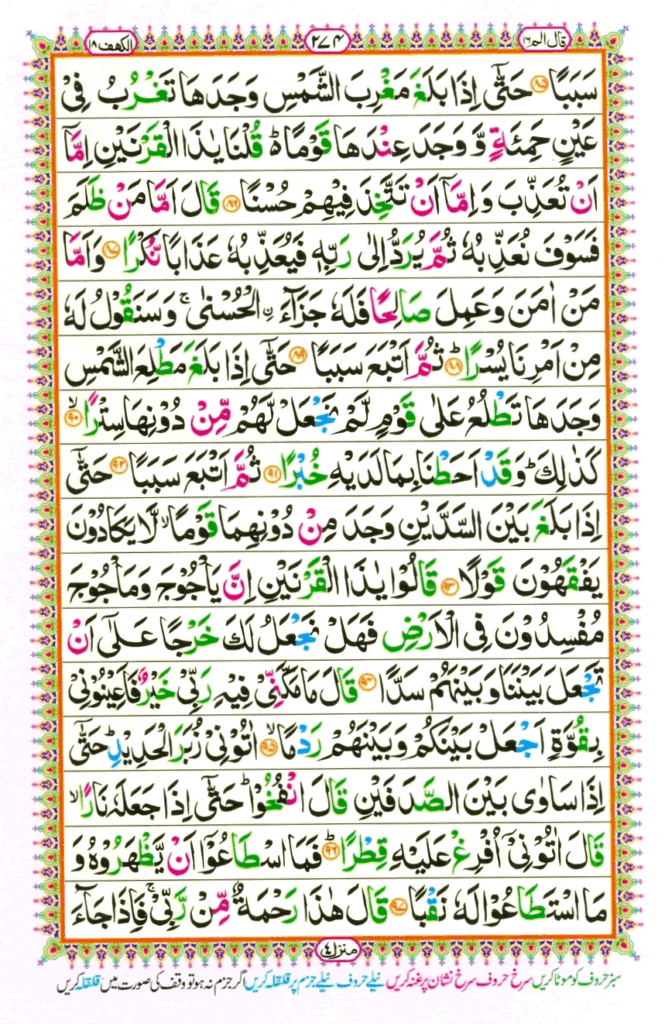 قال الم ١٦
٢٧٤
الكهف ١٨
سَبَبًا ﴿٨٥﴾ حَتّٰۤى اِذَا بَلَغَ مَغْرِبَ الشَّمْسِ وَجَدَهَا تَغْرُبُ فِیْ
عَیْنٍ حَمِئَةٍ وَّ وَجَدَ عِنْدَهَا قَوْمًا ؕ۬ قُلْنَا یٰذَا الْقَرْنَیْنِ اِمَّاۤ
اَنْ تُعَذِّبَ وَ اِمَّاۤ اَنْ تَتَّخِذَ فِیْهِمْ حُسْنًا ﴿٨٦﴾ قَالَ اَمَّا مَنْ ظَلَمَ
فَسَوْفَ نُعَذِّبُهٗ ثُمَّ یُرَدُّ اِلٰى رَبِّهٖ فَیُعَذِّبُهٗ عَذَابًا نُّكْرًا ﴿٨٧﴾ وَ اَمَّا
مَنْ اٰمَنَ وَعَمِلَ صَالِحًا فَلَهٗ جَزَآءَ ۨالْحُسْنٰى ۚ وَ سَنَقُوْلُ لَهٗ
مِنْ اَمْرِنَا یُسْرًا ؕ﴿٨٨﴾ ثُمَّ اَتْبَعَ سَبَبًا ﴿٨٩﴾ حَتّٰۤى اِذَا بَلَغَ مَطْلِعَ الشَّمْسِ
وَجَدَهَا تَطْلُعُ عَلٰى قَوْمٍ لَّمْ نَجْعَلْ لَّهُمْ مِّنْ دُوْنِهَا سِتْرًا ۙ﴿٩٠﴾
كَذٰلِكَ ؕ وَقَدْ اَحَطْنَا بِمَا لَدَیْهِ خُبْرًا ﴿٩١﴾ ثُمَّ اَتْبَعَ سَبَبًا ﴿٩٢﴾ حَتّٰۤى
اِذَا بَلَغَ بَیْنَ السَّدَّیْنِ وَجَدَ مِنْ دُوْنِهِمَا قَوْمًا ۙ لَّا یَكَادُوْنَ
یَفْقَهُوْنَ قَوْلًا ﴿٩٣﴾ قَالُوْا یٰذَا الْقَرْنَیْنِ اِنَّ یَاْجُوْجَ وَمَاْجُوْجَ
مُفْسِدُوْنَ فِی الْاَرْضِ فَهَلْ نَجْعَلُ لَكَ خَرْجًا عَلٰۤى اَنْ
تَجْعَلَ بَیْنَنَا وَبَیْنَهُمْ سَدًّا ﴿٩٤﴾ قَالَ مَا مَكَّنِّیْ فِیْهِ رَبِّیْ خَیْرٌ فَاَعِیْنُوْنِیْ
بِقُوَّةٍ اَجْعَلْ بَیْنَكُمْ وَبَیْنَهُمْ رَدْمًا ۙ﴿٩٥﴾ اٰتُوْنِیْ زُبَرَ الْحَدِیْدِ ؕ حَتّٰۤى
اِذَا سَاوٰى بَیْنَ الصَّدَفَیْنِ قَالَ انْفُخُوْا ؕ حَتّٰۤى اِذَا جَعَلَهٗ نَارًا ۙ
قَالَ اٰتُوْنِیْۤ اُفْرِغْ عَلَیْهِ قِطْرًا ؕ﴿٩٦﴾ فَمَا اسْطَاعُوْۤا اَنْ یَّظْهَرُوْهُ وَ
مَا اسْتَطَاعُوْا لَهٗ نَقْبًا ﴿٩٧﴾ قَالَ هٰذَا رَحْمَةٌ مِّنْ رَّبِّیْ ۚ فَاِذَا جَآءَ
منزل ٤
سبز حروف کو موٹا کریں سرخ حروف سرخ نشان پر غنہ کریں نیلے حروف نیلے جزم پر قلقلہ کریں اگر جزم نہ ہو تو وقف کی صورت میں قلقلہ کریں